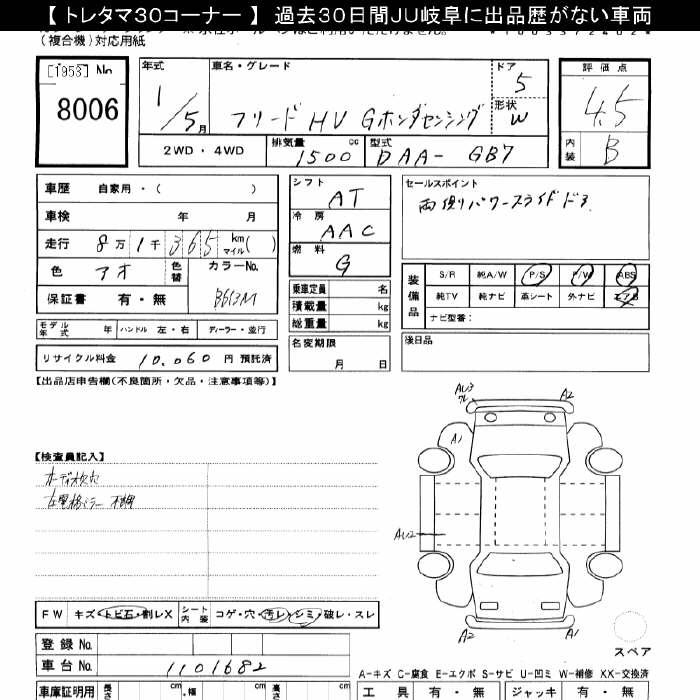 【 トレタマ30コーナー 】 過去30日間JU岐阜に出品歴がない車両
(複合機)対応用紙
[1953] No
8006
年式
1/5月
車名・グレード
フリード HV Gホンダセンシング
ドア
5
形状
W
評価点
4.5
内装
B
2WD・4WD
排気量
1500 cc
型式
DAA- GB7
車歴 自家用・( )
車検 年 月
走行 8万 1千 365 km マイル( )
色 アオ 色替 カラーNo. B613M
保証書 有・無
モデル年式 年 ハンドル 左・右 ディーラー・並行
リサイクル料金 10,060 円 預託済
シフト
AT
冷房
AAC
燃料
G
乗車定員 名
積載量 kg
総重量 kg
名変期限
月 日
セールスポイント
両側パワースライドドア
装備品
S/R 純A/W P/S P/W ABS
純TV 純ナビ 革シート 外ナビ エアB
ナビ型番:
後日品
【出品店申告欄(不良箇所・欠品・注意事項等)】
【検査員記入】
オーディオ欠品
左電格ミラー 不良
AU3
A2
A1
AU2
A2
A1
スペア
FW キズ・トビ石・割レX シート内装 コゲ・穴・汚レ・シミ・破レ・スレ
登録 No.
車台 No. 1101682
A-キズ C-腐食 E-エクボ S-サビ U-凹ミ W-補修 XX-交換済
車庫証明用 長さ cm ・幅 cm 高さ cm
工具 有・無 ジャッキ 有・無